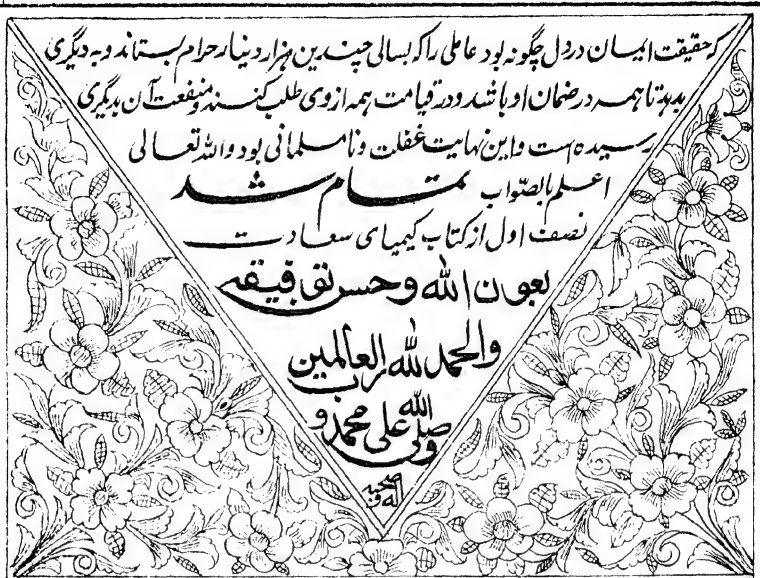 که حقیقت ایمان در دل چگونه بود عاملی را که بسالی چندین هزار دینار حرام بستاند و به دیگری
بدهد تا همه در ضمان او باشد و در قیامت همه از وی طلب کنند و منفعت آن بدیگری
رسیده است و این نهایت غفلت و نامسلمانی بود والله تعالی
اعلم بالصواب تمام شد
نصف اول از کتاب کیمیای سعادت
بعون الله وحسن توفیقه
والحمد لله رب العالمین
وصلی الله علی محمد و
آله وصحبه